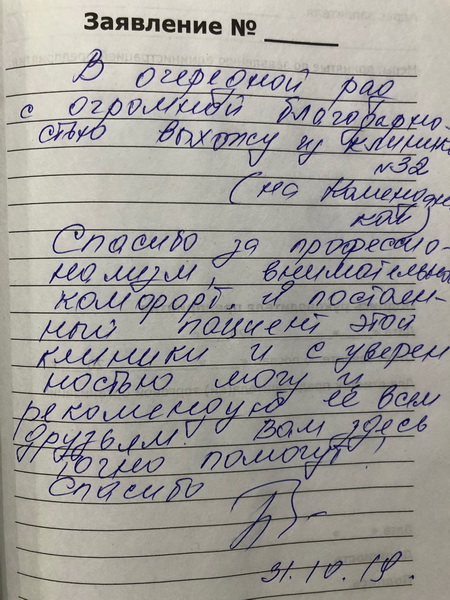 Заявление № ______
В очередной раз
с огромной благодарно-
стью выхожу из клиник
№32
(на Каменоост
кой)
Спасибо за профессио-
нализм, внимательно
комфорт. и постоян-
ный пациент этой
клиники и с уверен
ностью могу и
рекомендую её всем
друзьям. Вам здесь
точно помогут!
Спасибо
31.10.19.